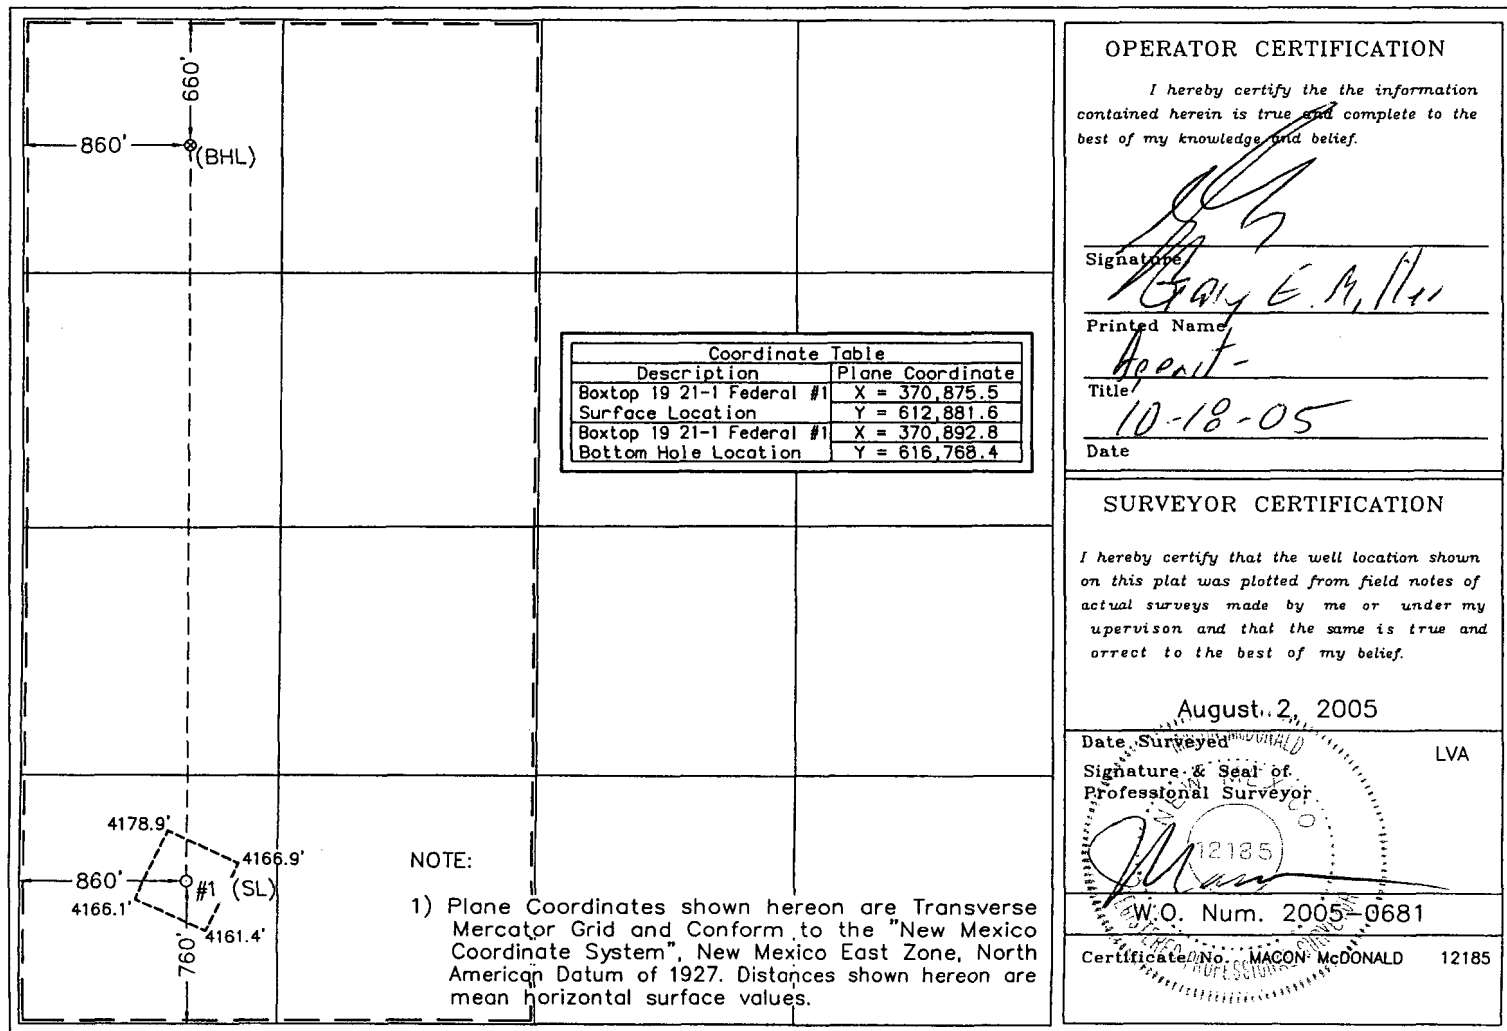 660'
860'
(BHL)
Coordinate Table
Description Plane Coordinate
Boxtop 19 21-1 Federal #1 X = 370,875.5
Surface Location Y = 612,881.6
Boxtop 19 21-1 Federal #1 X = 370,892.8
Bottom Hole Location Y = 616,768.4
4178.9'
4166.9'
860'
#1 (SL)
4166.1'
4161.4'
760'
NOTE:
1) Plane Coordinates shown hereon are Transverse
Mercator Grid and Conform to the "New Mexico
Coordinate System", New Mexico East Zone, North
American Datum of 1927. Distances shown hereon are
mean horizontal surface values.
OPERATOR CERTIFICATION
I hereby certify the the information
contained herein is true and complete to the
best of my knowledge and belief.
Signature
Gary E. Miller
Printed Name
Agent
Title
10-18-05
Date
SURVEYOR CERTIFICATION
I hereby certify that the well location shown
on this plat was plotted from field notes of
actual surveys made by me or under my
upervison and that the same is true and
orrect to the best of my belief.
August 2, 2005
Date Surveyed LVA
Signature & Seal of
Professional Surveyor
McDONALD
NEW MEXICO
12185
REGISTERED PROFESSIONAL SURVEYOR
W.O. Num. 2005-0681
Certificate No. MACON McDONALD 12185